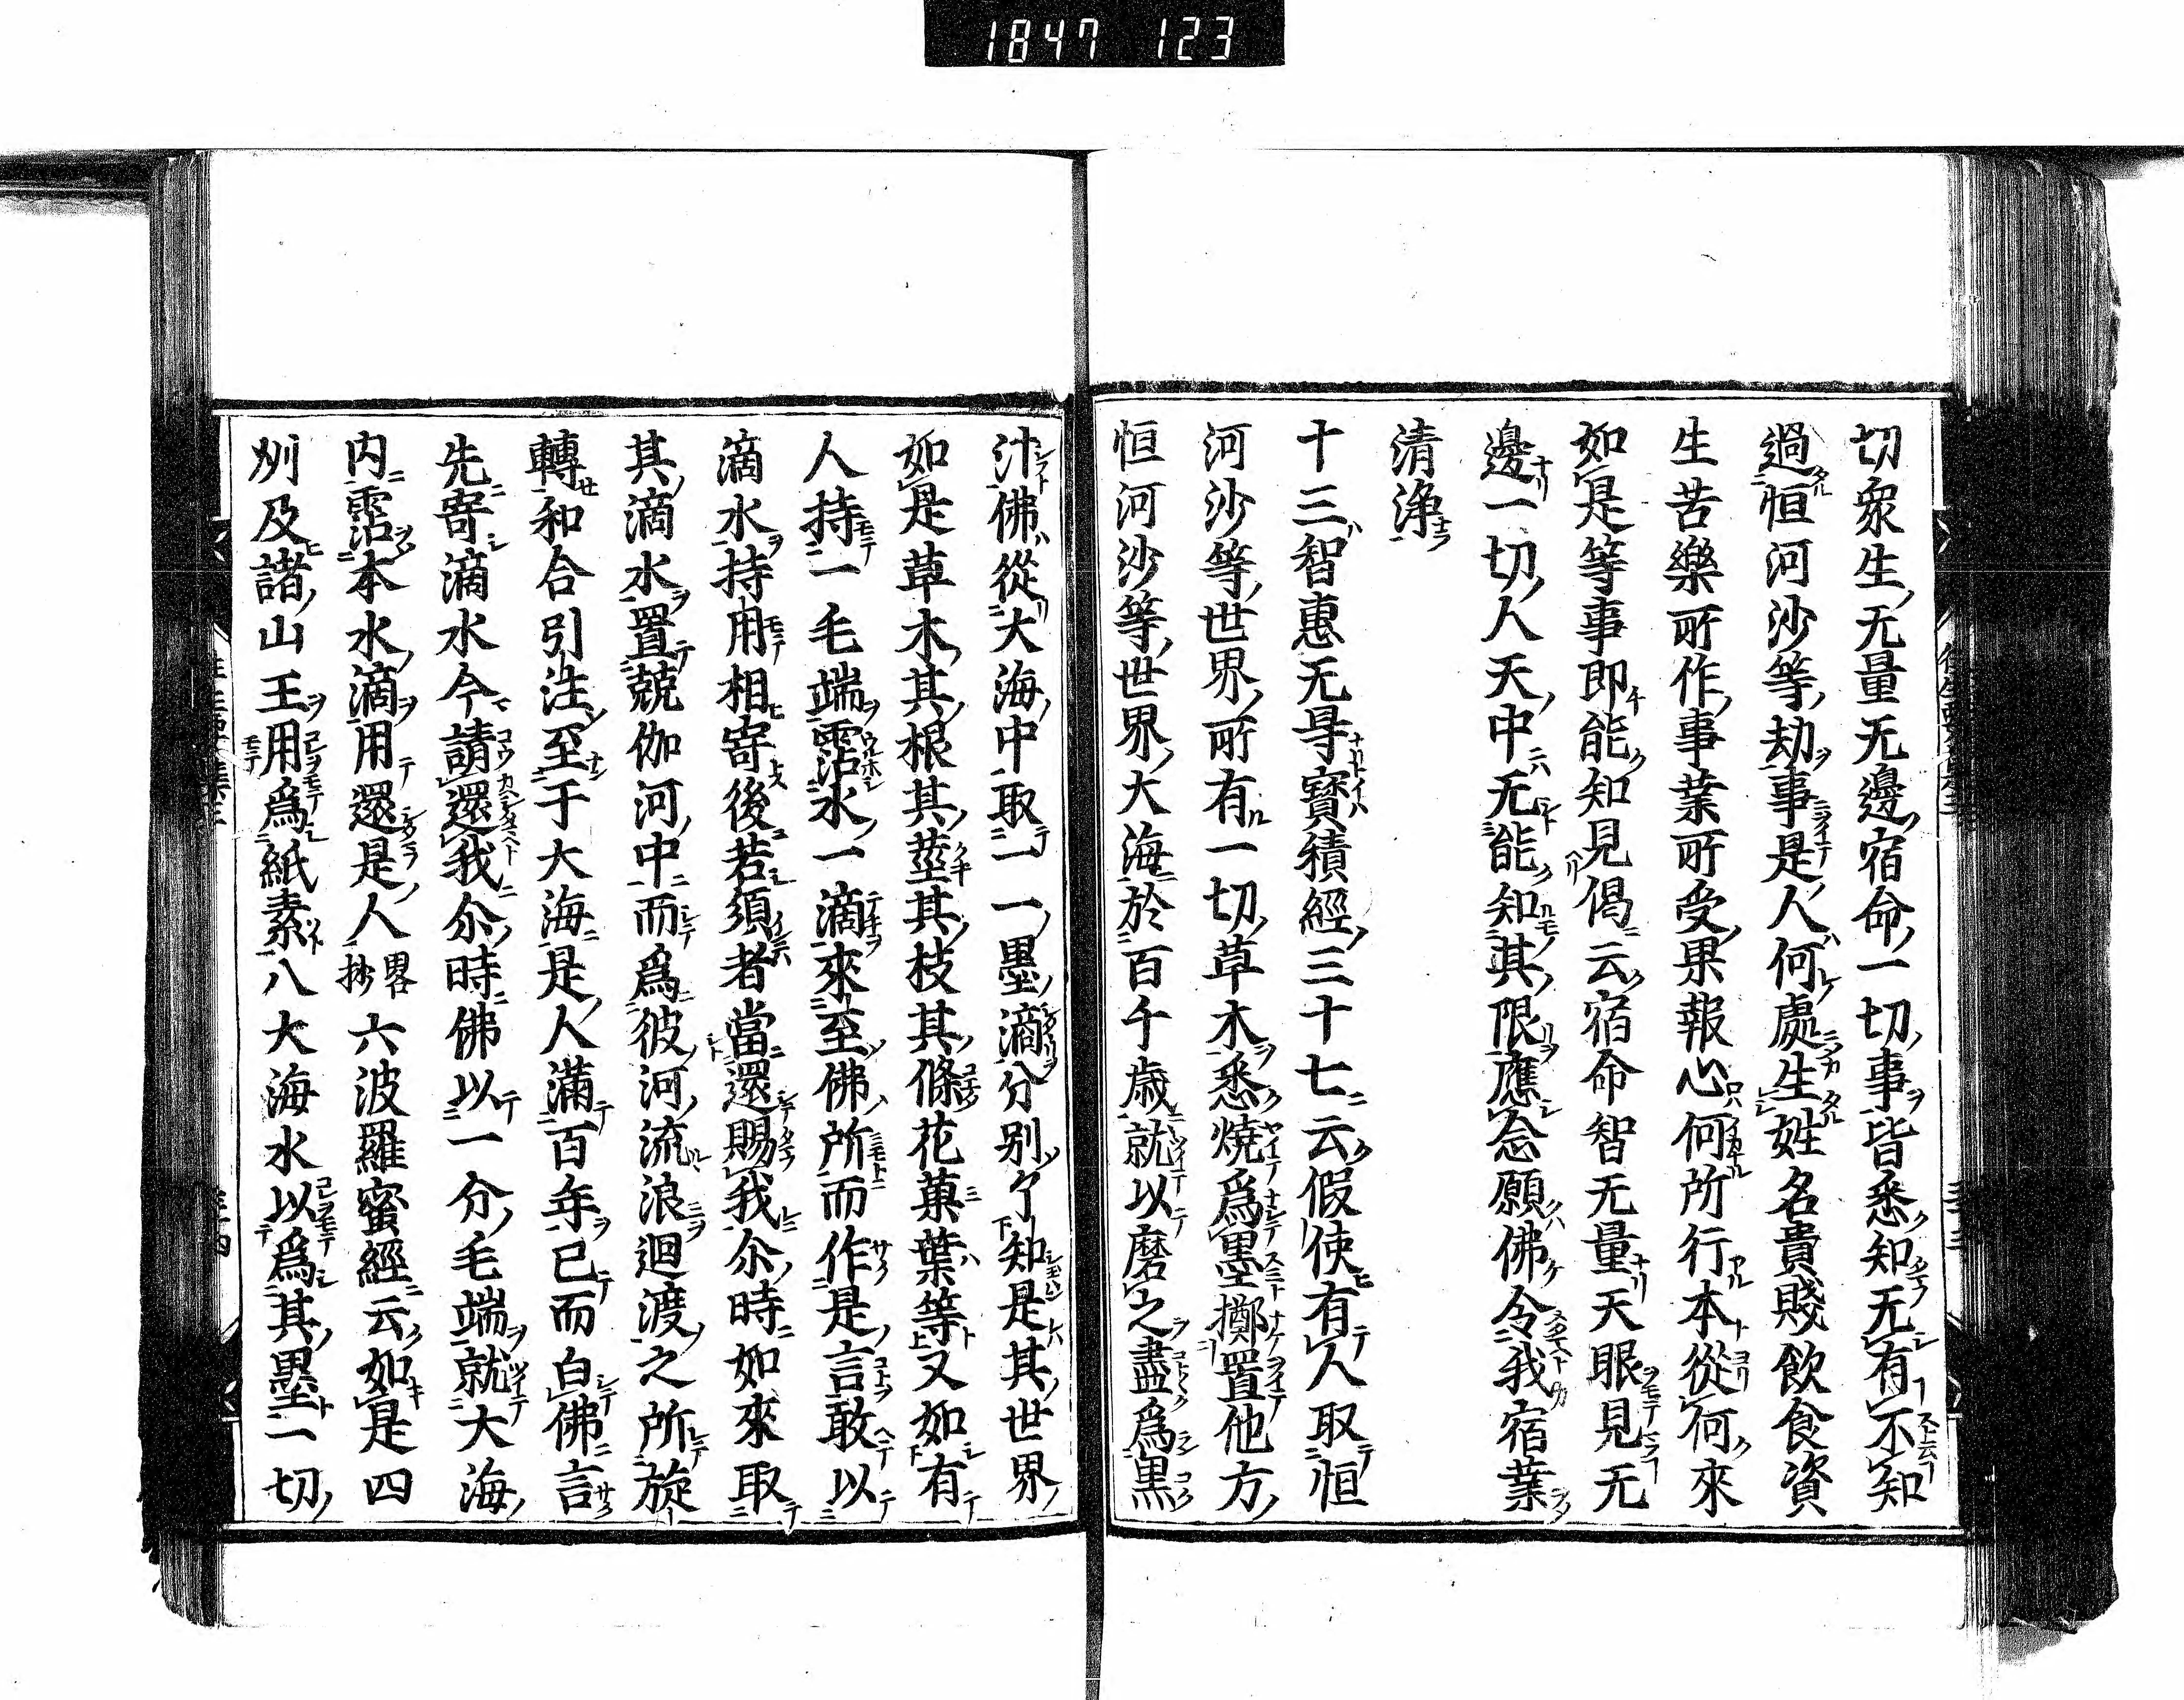 1847 123
切衆生无量无邊宿命一切事皆悉知无有不知
過恒河沙等劫事是人何處生姓名貴賤飲食資
生苦樂所作事業所受果報心何所行本從何來
如是等事即能知見偈云宿命智无量天眼見无
邊一切人天中无能知其限應念願佛令我宿業
清浄
十三智惠无㝵寳積經三十七云假使有人取恒
河沙等世界所有一切草木悉燒爲墨擲置他方
恒河沙等世界大海於百千歳就以磨之盡爲黒
汁佛從大海中取一一墨滴分別了知是其世界
如是草木其根其莖其枝其條花菓葉等又如有
人持一毛端霑水一滴來至佛所而作是言敢以
滴水持用相寄後若須者當還賜我尒時如來取
其滴水置兢伽河中而爲彼河流浪迴渡之所旋
轉和合引注至于大海是人滿百年已而白佛言
先寄滴水今請還我尒時佛以一分毛端就大海
内霑本水滴用還是人畧抄六波羅蜜經云如是四
州及諸山王用爲紙素八大海水以爲其墨一切